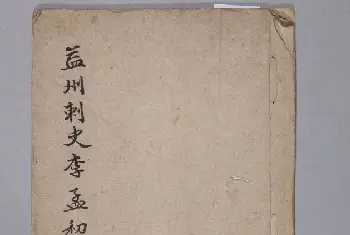 益州刺史李孟初